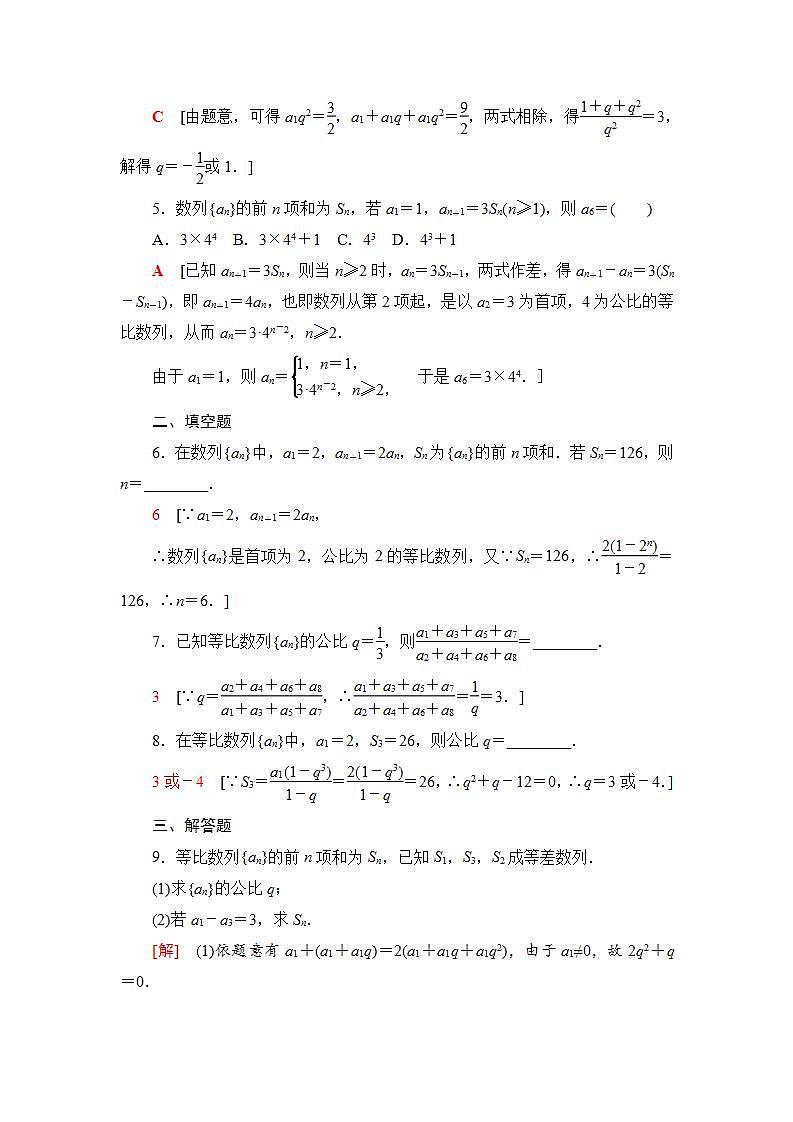 C　[由题意，可得 a₁q²＝3/2，a₁＋a₁q＋a₁q²＝9/2，两式相除，得(1＋q＋q²)/q²＝3，
解得 q＝－1/2或 1．]
5．数列{aₙ}的前 n 项和为 Sₙ，若 a₁＝1，aₙ₊₁＝3Sₙ(n≥1)，则 a₆＝(　　)
A．3×4⁴　B．3×4⁴＋1　C．4³　D．4³＋1
A　[已知 aₙ₊₁＝3Sₙ，则当 n≥2 时，aₙ＝3Sₙ₋₁，两式作差，得 aₙ₊₁－aₙ＝3(Sₙ
－Sₙ₋₁)，即 aₙ₊₁＝4aₙ，也即数列从第 2 项起，是以 a₂＝3 为首项，4 为公比的等
比数列，从而 aₙ＝3·4ⁿ⁻²，n≥2．
由于 a₁＝1，则 aₙ＝{1，n＝1，
3·4ⁿ⁻²，n≥2，　于是 a₆＝3×4⁴．]
二、填空题
6．在数列{aₙ}中，a₁＝2，aₙ₊₁＝2aₙ，Sₙ为{aₙ}的前 n 项和．若 Sₙ＝126，则
n＝________．
6　[∵a₁＝2，aₙ₊₁＝2aₙ，
∴数列{aₙ}是首项为 2，公比为 2 的等比数列，又∵Sₙ＝126，∴2(1－2ⁿ)/(1－2)＝
126，∴n＝6．]
7．已知等比数列{aₙ}的公比 q＝1/3，则(a₁＋a₃＋a₅＋a₇)/(a₂＋a₄＋a₆＋a₈)＝________．
3　[∵q＝(a₂＋a₄＋a₆＋a₈)/(a₁＋a₃＋a₅＋a₇)，∴(a₁＋a₃＋a₅＋a₇)/(a₂＋a₄＋a₆＋a₈)＝1/q＝3．]
8．在等比数列{aₙ}中，a₁＝2，S₃＝26，则公比 q＝________．
3 或－4　[∵S₃＝a₁(1－q³)/(1－q)＝2(1－q³)/(1－q)＝26，∴q²＋q－12＝0，∴q＝3 或－4．]
三、解答题
9．等比数列{aₙ}的前 n 项和为 Sₙ，已知 S₁，S₃，S₂成等差数列．
(1)求{aₙ}的公比 q；
(2)若 a₁－a₃＝3，求 Sₙ．
[解]　(1)依题意有 a₁＋(a₁＋a₁q)＝2(a₁＋a₁q＋a₁q²)，由于 a₁≠0，故 2q²＋q
＝0．